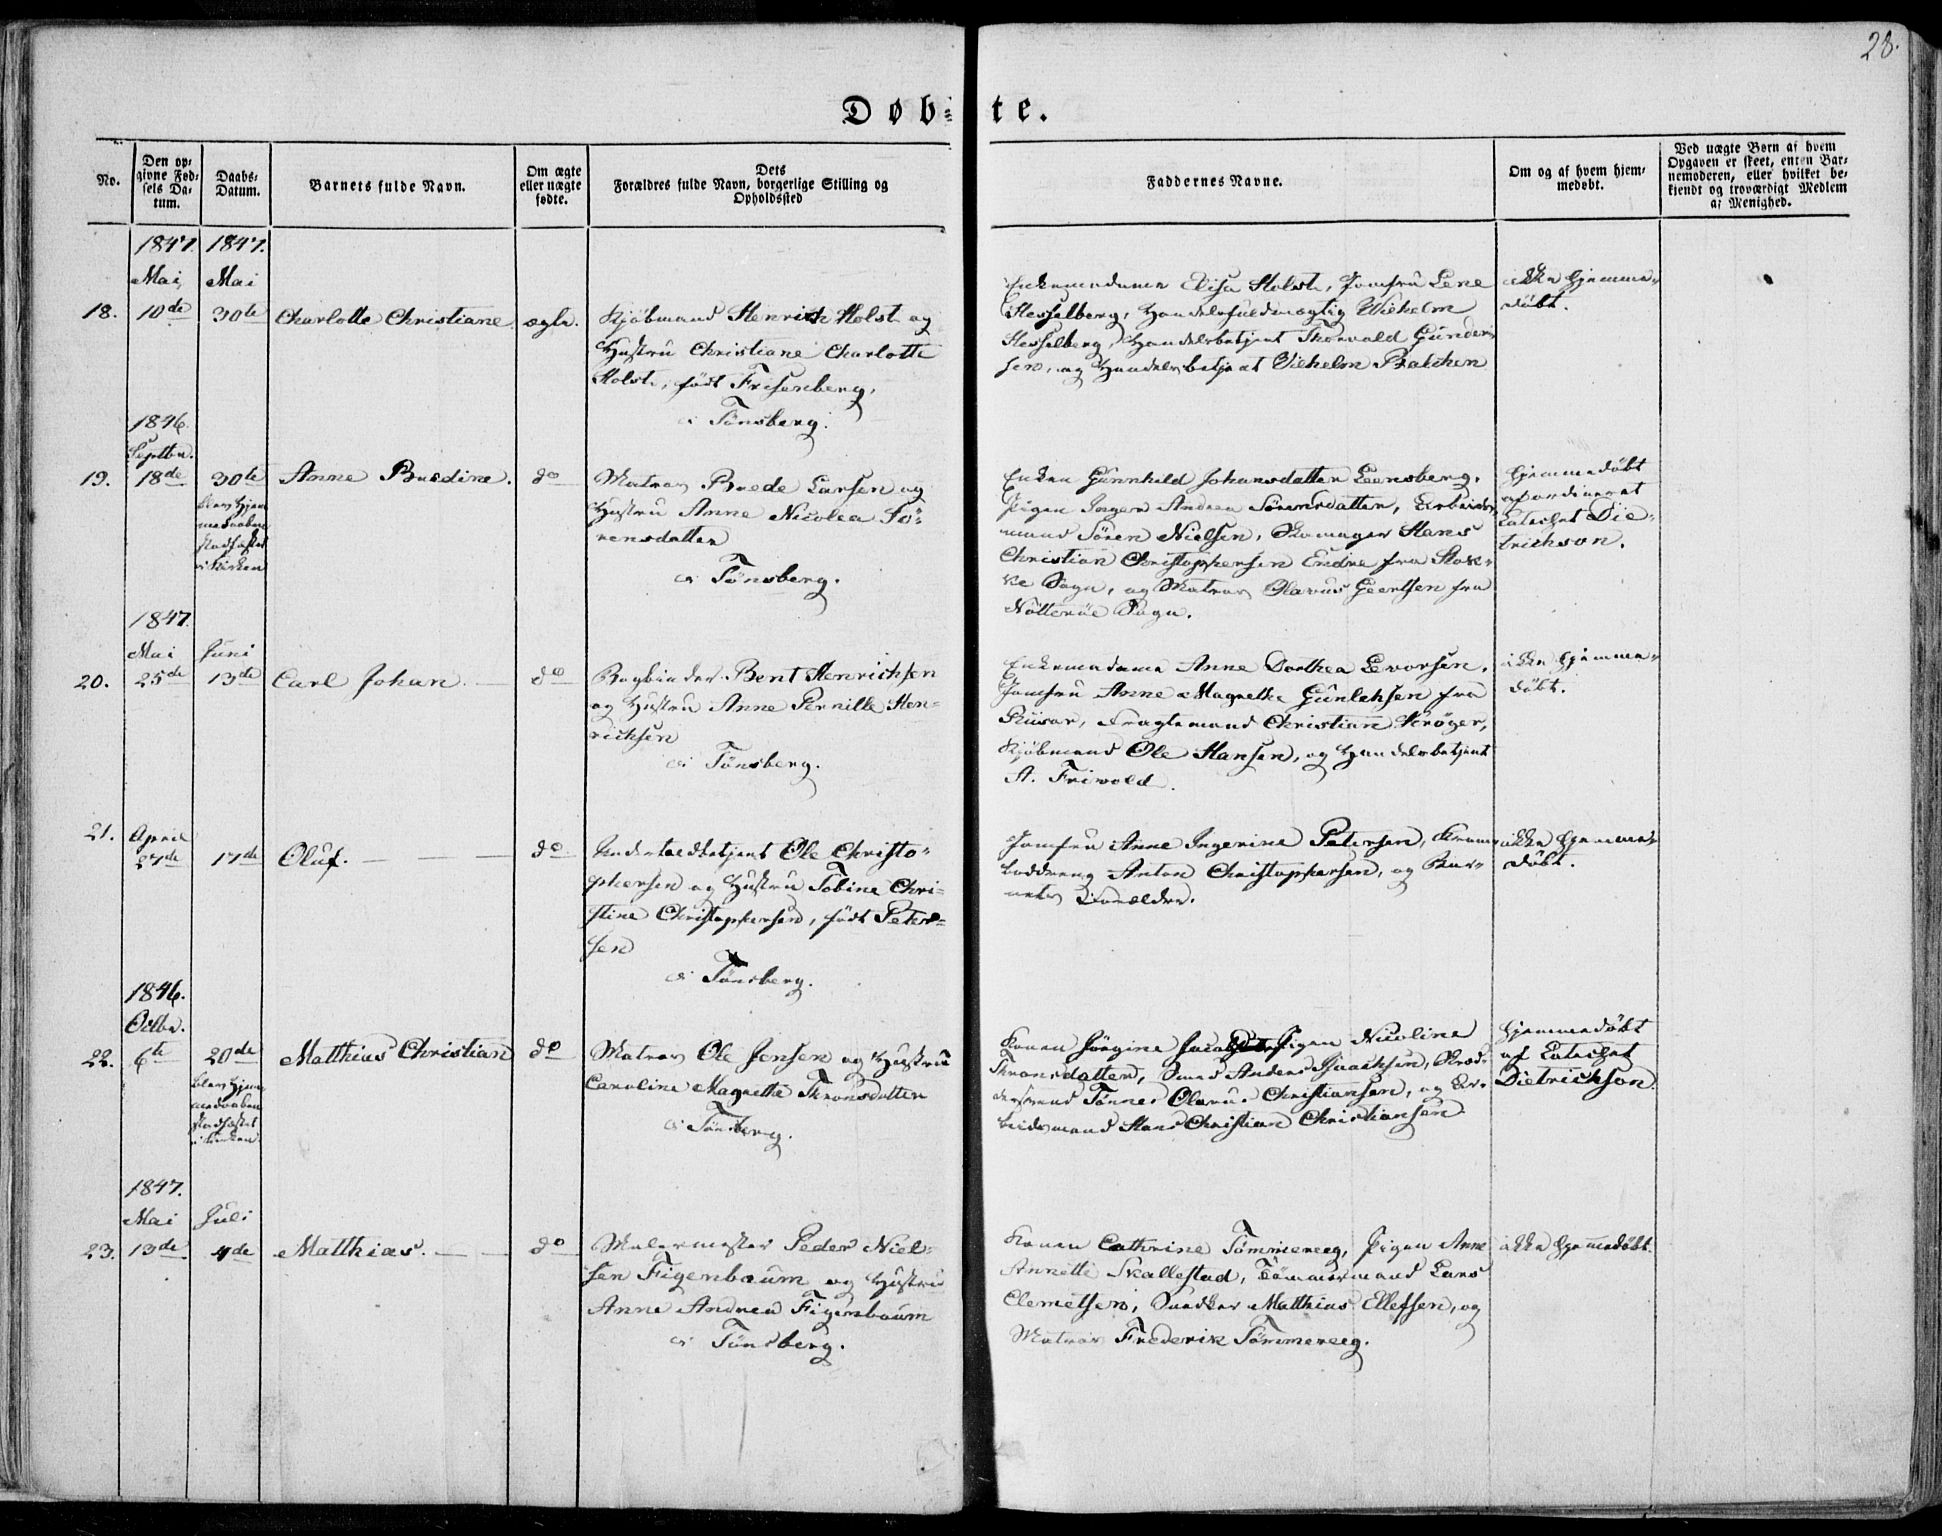 28.
Døb=te.
No.
Den op=
givne Fød=
sels Da=
tum.
Daabs=
Datum.
Barnets fulde Navn.
Om ægte
eller uægte
fødte.
Dets
Forældres fulde Navn, borgerlige Stilling og
Opholdssted
Faddernes Navne.
Om og af hvem hjem=
medøbt.
Ved uægte Børn af hvem
Opgaven er skeet, enten Bar=
nemoderen, eller hvilket be=
kjendt og troværdigt Medlem
af Menighed.
1847. 1847.
Mai Mai
18. 10de 30te Charlotte Christiane. ægte.
Kjöbmand Henrich Holst og
Hustru Christiane Charlotte
Holst, född Frisenberg,
i Tönsberg.
Enkemadame Elisa Holst, Jomfru Lene
Hesselberg, Handelsfuldmægtig Wilhelm
Hesselberg, Handelsbetjent Thorvald Gunder=
sen, og Handelsbetjent Vilhelm Balchen
ikke hjemme=
döbt.
1846.
Septbr.
19. 18de 30te Anne Bredine. do
blev hjem
medaaben
stadfæstet
i Kirken
Matros Brede Larsen og
Hustru Anne Nicolea Sö=
rensdatter
i Tönsberg.
Enken Gunnhild Johansdatter Leensberg,
Pigen Inger Andrea Sörensdatter, Arbeids
mand Sören Nielsen, Skomager Hans
Christian Christophersen Endre fra Stok=
ke Sogn, og Matros Olavus Geertsen fra
Nötteröe Sogn.
hjemmedöbt
af ordineret
Catechet Die=
trichson.
1847.
Mai Juni
20. 25de 13de Carl Johan. do
Bogbinder Bent Henrichsen
og Hustru Anne Pernille Hen=
richsen
i Tönsberg.
Enkemadame Anne Dorthea Evorsen,
Jomfru Anne Magrethe Gunlehsen fra
Riisør, Fragtemand Christian Kröger,
Kjöbmand Ole Hansen, og Handelsbetjent
A. Friwold.
ikke hjemme=
döbt.
21. April
27de 17de Oluf. do
Undertoldbetjent Ole Christo=
phersen og Hustru Tobine Chri=
stine Christophersen, född Peter=
sen
i Tönsberg.
Jomfru Anne Ingerine Petersen, Kram
boddreng Anton Christophersen, og Bar=
nets Forældre.
ikke hjemme=
döbt.
1846.
Octbr.
22. 6te 20de Matthias Christian do
blev hjem
medaaben
stadfæstet
i Kirken
Matros Ole Jensen og Hustru
Caroline Magrethe Thronsdatter
i Tönsberg.
Konen Jörgine Pigen Nicoline
Thronsdatter, Smed Anders Isaachsen,
Tönnes Olavus Christiansen, og Ar=
beidsmand Hans Christian Christiansen.
hjemmedöbt
af Catechet
Dietrichson.
1847.
Mai Juli
23. 13de 4de Matthias. do
Malermester Peder Niel=
sen Figenbaum og Hustru
Anne Andrea Figenbaum
i Tönsberg.
Konen Cathrine Tömmereeg, Pigen Anne
Annette Skallestad, Tömmermand Lars
Clemetsen, Snedker Matthias Ellefsen, og
Matros Frederik Tömmereeg.
ikke hjemmedöbt.